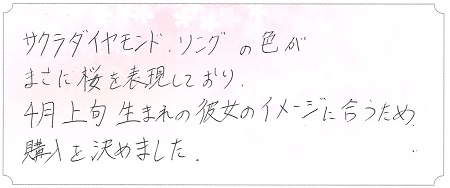 サクラダイヤモンド．リングの色が
まさに桜を表現しており．
4月上旬生まれの彼女のイメージに合うため
購入を決めました．